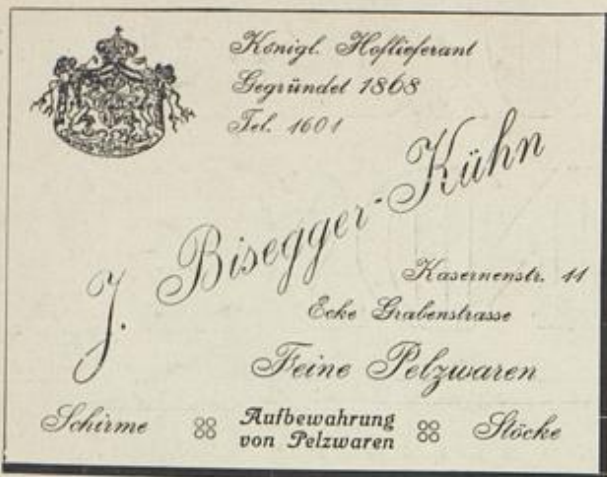 Königl. Hoflieferant
Gegründet 1868
Tel. 1601
J. Bisegger-Kühn
Kasernenstr. 11
Ecke Grabenstrasse
Feine Pelzwaren
Schirme Aufbewahrung von Pelzwaren Stöcke